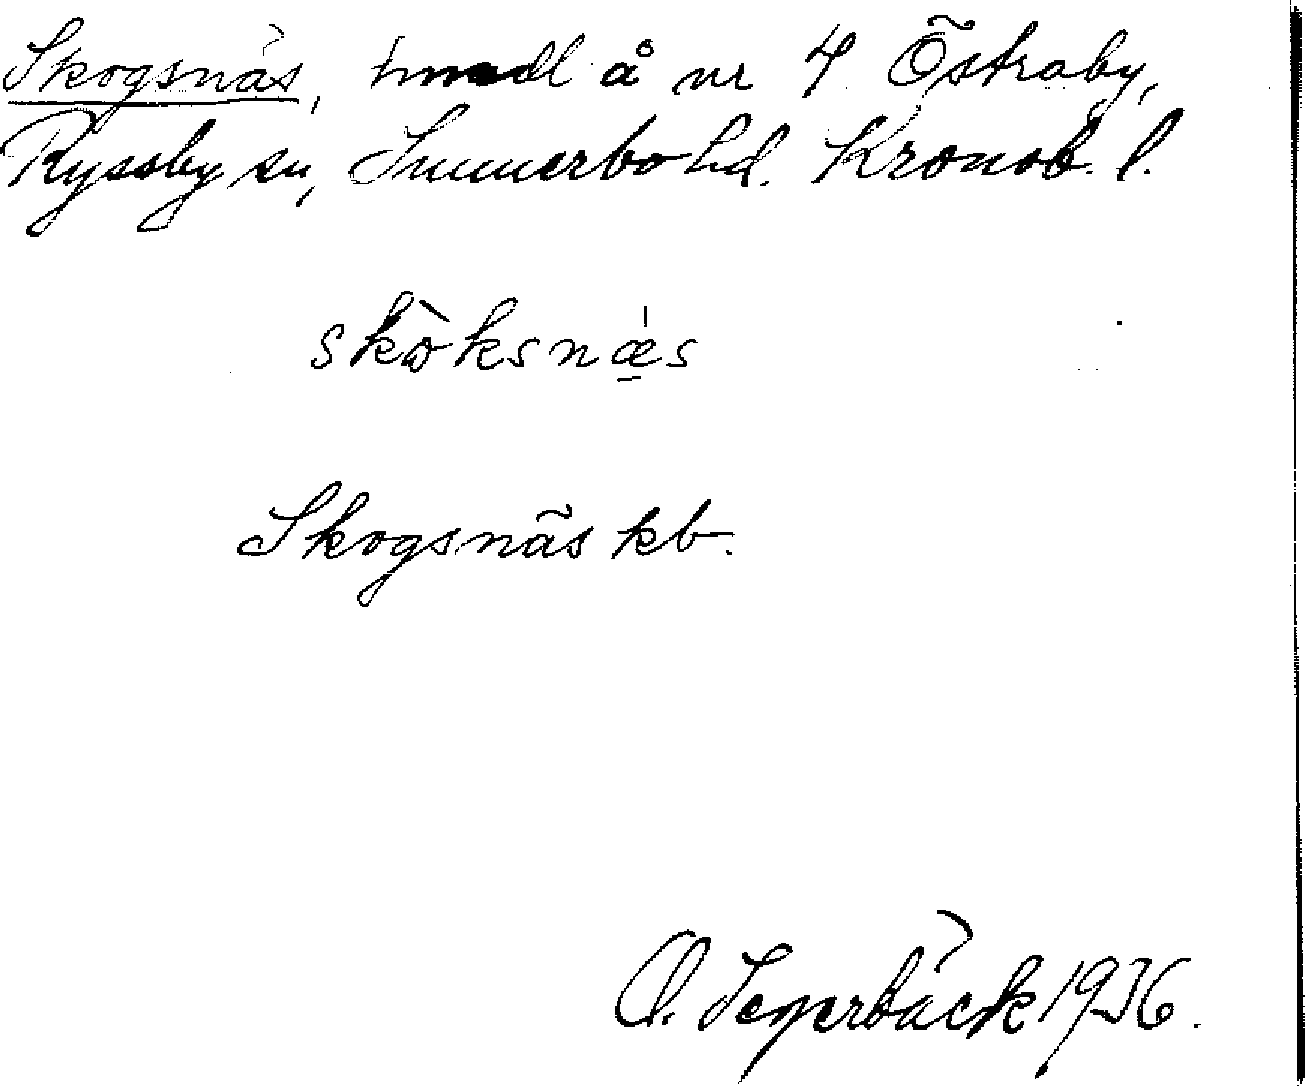 Skogsnäs, hmdl å nr 4 Östraby,
Ryssby sn, Sunnerbo hd. Kronob. l.
skòksnæ̠s
Skogsnäs kb.
O. Segerbäck 1936.